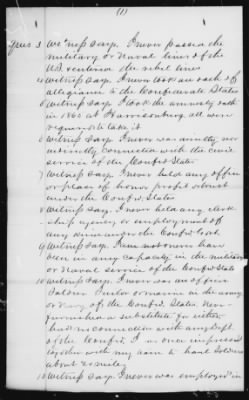 (1)
Ques 3 Witness says. I never passed the
military or Naval lines of the
U.S. entered the rebel lines
4 Witness says I never took an oath of
allegiance to the Confederate States
5 Witness says I took the amnesty oath
in 1865 at Harrisonburg all were
required to take it
6 Witness says I never was directly nor
indirectly connected with the civil
service of the Confed. States
7 Witness says I never held any office
or place of honor profit or trust
under the Confed. States
8 Witness says I never held any clerk
ship agency or employment of
any kind under the Confed. Govt.
9 Witness says I am not never have
been in any capacity in the military
or Naval service of the Confed States
10 Witness says I never was an officer
Soldier Sailor or marine in the army
or Navy of the Confed. States never
furnished a substitute for either
had no connection with any Dept
of the Confed. I was once impressed
together with my team to haul Soldiers
about 20 miles
Witness says I never was employed in